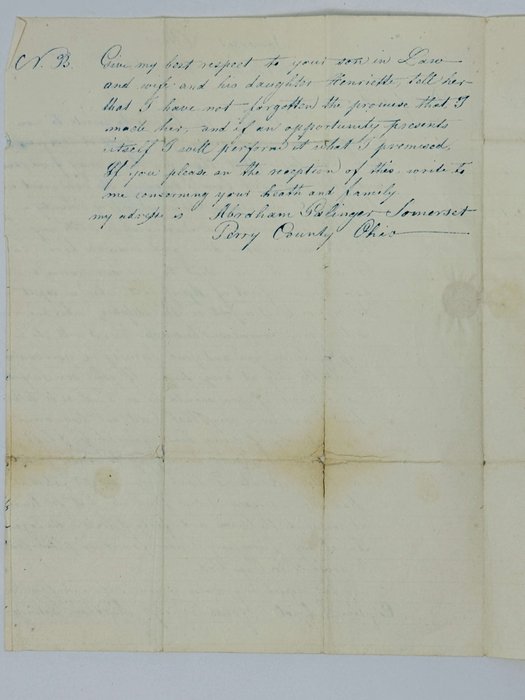 N. B. Give my best respect to your son in Law
and wife and his daughter Henriette, tell her
that I have not forgotten the promise that I
made her, and if an opportunity presents
itself I will perform it what I promised.
If you please on the reception of this write to
me consorning your heath and family.
my adress is Abraham Somerset
Perry County Ohio